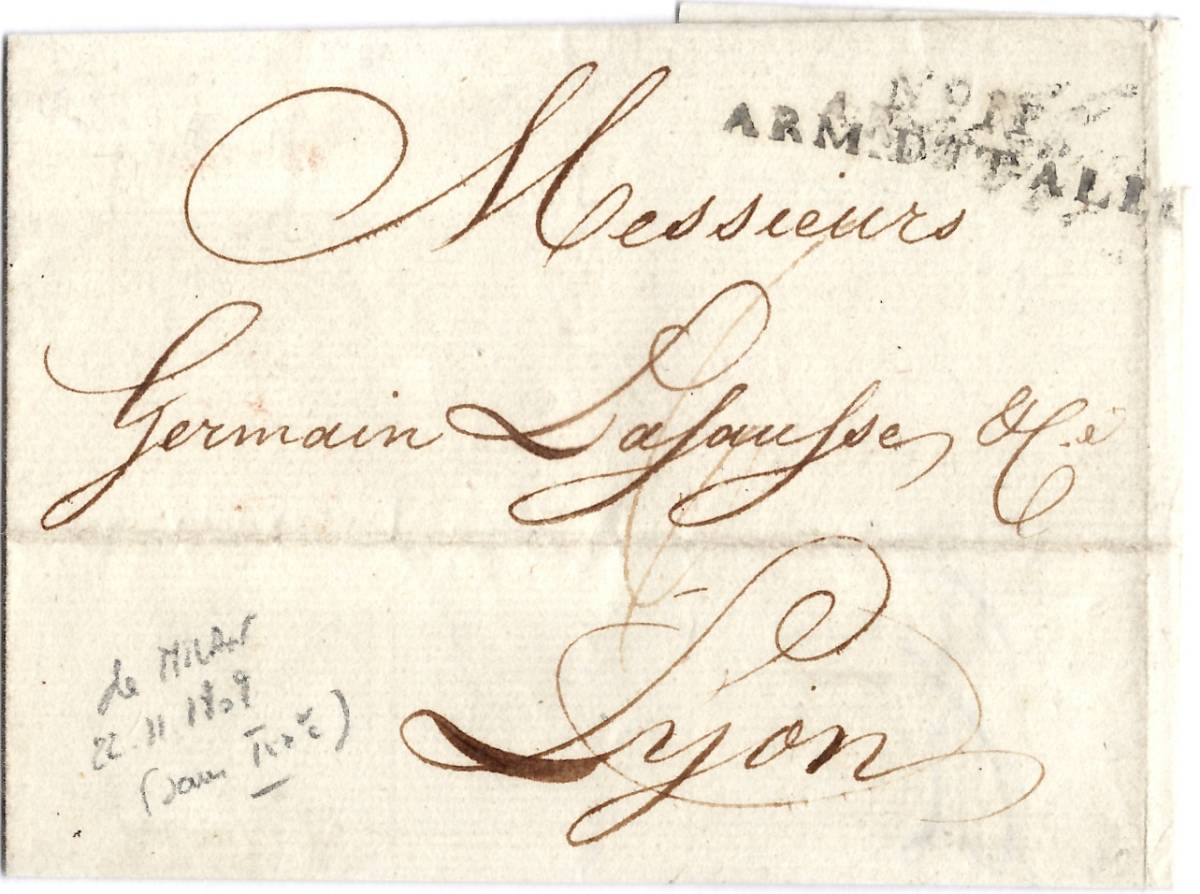 N°
ARM. D'ITALIE
Messieurs
Germain Lafausse & C.ie
Lyon
de MILAN
22.11.1809